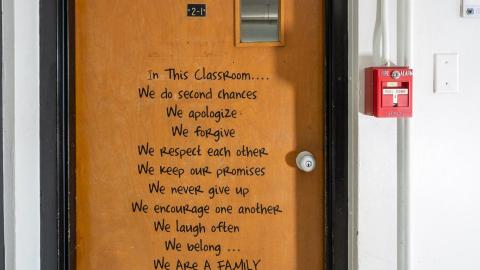 2-1
In This Classroom....
We do second chances
We apologize
We forgive
We respect each other
We keep our promises
We never give up
We encourage one another
We laugh often
We belong ...
We ARE A FAMILY